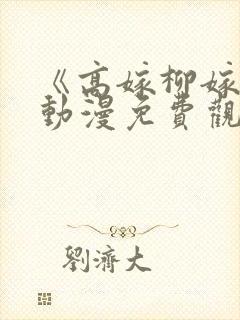 《高嫁柳嫁
動漫免費觀
劉濟大